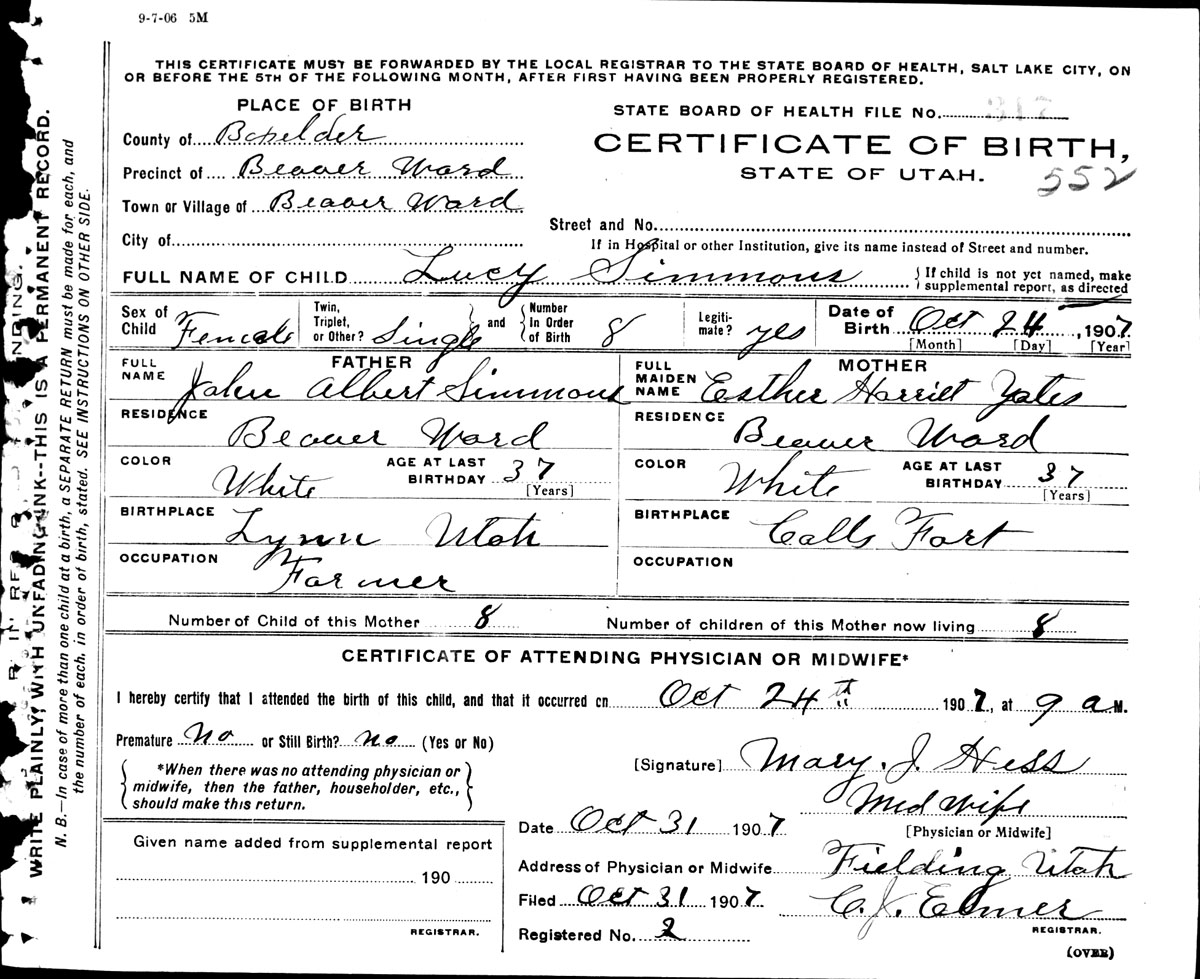 9-7-06 5M
THIS CERTIFICATE MUST BE FORWARDED BY THE LOCAL REGISTRAR TO THE STATE BOARD OF HEALTH, SALT LAKE CITY, ON
OR BEFORE THE 5TH OF THE FOLLOWING MONTH, AFTER FIRST HAVING BEEN PROPERLY REGISTERED.
PLACE OF BIRTH
STATE BOARD OF HEALTH FILE No. 317
County of Boxelder
CERTIFICATE OF BIRTH,
Precinct of Beaver Ward
STATE OF UTAH.
552
Town or Village of Beaver Ward
Street and No.
City of
If in Hospital or other Institution, give its name instead of Street and number.
FULL NAME OF CHILD Lucy Simmons
{ If child is not yet named, make
supplemental report, as directed
Sex of Child Female
Twin, Triplet, or Other? Single } and { Number In Order of Birth 8
Legiti-mate? yes
Date of Birth Oct 24, 1907
[Month] [Day] [Year]
FATHER
FULL NAME John Albert Simmons
MOTHER
FULL MAIDEN NAME Esther Harriet Yates
RESIDENCE Beaver Ward
RESIDENCE Beaver Ward
COLOR White
AGE AT LAST BIRTHDAY 37 [Years]
COLOR White
AGE AT LAST BIRTHDAY 37 [Years]
BIRTHPLACE Lynn Utah
BIRTHPLACE Calls Fort
OCCUPATION Farmer
OCCUPATION
Number of Child of this Mother 8
Number of children of this Mother now living 8
CERTIFICATE OF ATTENDING PHYSICIAN OR MIDWIFE*
I hereby certify that I attended the birth of this child, and that it occurred on Oct 24th 1907, at 9 a M.
Premature No or Still Birth? no (Yes or No)
{ *When there was no attending physician or
midwife, then the father, householder, etc.,
should make this return. }
[Signature] Mary. J. Hess
Mid wife
[Physician or Midwife]
Date Oct 31 1907
Given name added from supplemental report
190
REGISTRAR.
Address of Physician or Midwife Fielding Utah
Filed Oct 31 1907 C. J. Elmer
REGISTRAR.
Registered No. 2
(OVER)
WRITE PLAINLY, WITH UNFADING INK--THIS IS A PERMANENT RECORD.
N. B.—In case of more than one child at a birth, a SEPARATE RETURN must be made for each, and
the number of each, in order of birth, stated. SEE INSTRUCTIONS ON OTHER SIDE.